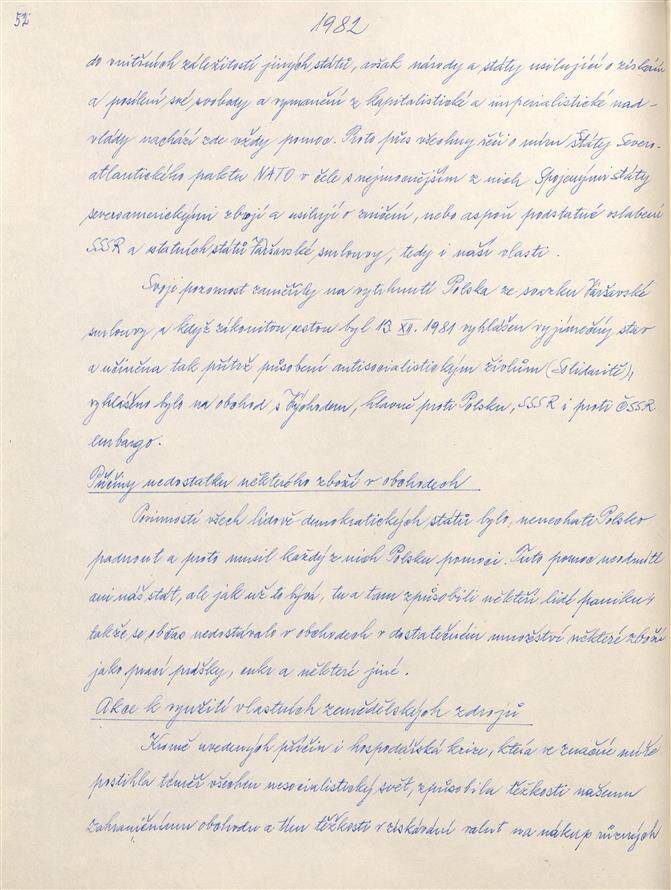 52
1982
do vnitřních záležitostí jiných států, avšak národy a státy usilující o získání
a posílení své svobody a vymanění z kapitalistické a imperialistické nad-
vlády nachází zde vždy pomoc. Proto přes všechny řeči o míru Státy Severo-
atlantického paktu NATO v čele s nejmocnějším z nich Spojenými státy
severoamerickými zbrojí a usilují o zničení, nebo aspoň podstatné oslabení
SSSR a ostatních států Varšavské smlouvy, tedy i naší vlasti.
Svoji pozornost zaměřily na vytrhnutí Polska ze svazku Varšavské
smlouvy a když zákonitou cestou byl 13. XII. 1981 vyhlášen vyjímečný stav
a učiněna tak přítrž působení antisocialistickým živlům (Solidaritě),
vyhlášeno bylo na obchod s Východem, hlavně proti Polsku, SSSR i proti ČSSR
embargo.
Příčiny nedostatku některého zboží v obchodech
Povinností všech lidově demokratických států bylo, nenechati Polsko
padnout a proto musil každý z nich Polsku pomoci. Tuto pomoc neodmítl
ani náš stát, ale jak už to bývá, tu a tam způsobili někteří lidé paniku,
takže se občas nedostávalo v obchodech v dostatečném množství některé zboží
jako prací prášky, cukr a některé jiné.
Akce k využití vlastních zemědělských zdrojů
Kromě uvedených příčin i hospodářská krize, která ve značné míře
postihla téměř všechen nesocialistický svět, způsobila těžkosti našemu
zahraničnímu obchodu a tím těžkosti v získávání valut na nákup různých